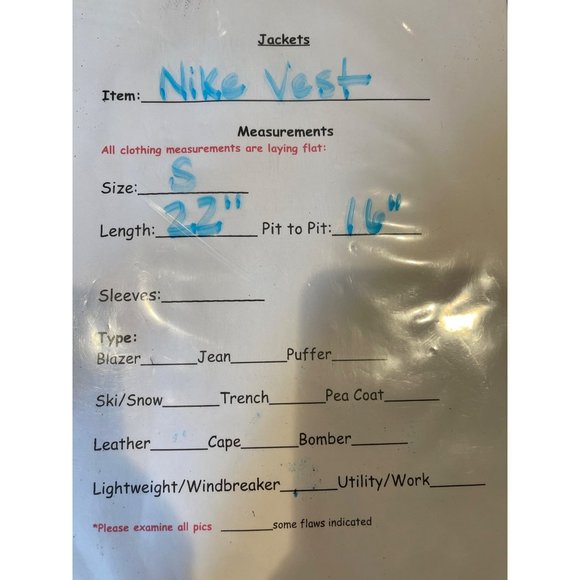 Jackets
Item: Nike Vest
Measurements
All clothing measurements are laying flat:
Size: S
Length: 22" Pit to Pit: 16"
Sleeves:
Type:
Blazer Jean Puffer
Ski/Snow Trench Pea Coat
Leather Cape Bomber
Lightweight/Windbreaker Utility/Work
*Please examine all pics some flaws indicated